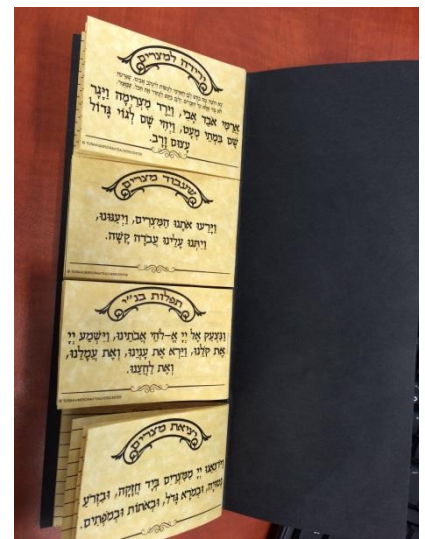 ירידה למצרים
אֲרַמִּי אֹבֵד אָבִי, וַיֵּרֶד מִצְרַיְמָה וַיָּגָר
שָׁם בִּמְתֵי מְעָט, וַיְהִי שָׁם לְגוֹי גָּדוֹל
עָצוּם וָרָב.
שעבוד מצרים
וַיָּרֵעוּ אֹתָנוּ הַמִּצְרִים, וַיְעַנּוּנוּ,
וַיִּתְּנוּ עָלֵינוּ עֲבֹדָה קָשָׁה.
תפלות בנ"י
וַנִּצְעַק אֶל יְיָ אֱ–לֹהֵי אֲבֹתֵינוּ, וַיִּשְׁמַע יְיָ
אֶת קֹלֵנוּ, וַיַּרְא אֶת עָנְיֵנוּ, וְאֶת עֲמָלֵנוּ,
וְאֶת לַחֲצֵנוּ.
יציאת מצרים
וַיּוֹצִאֵנוּ יְיָ מִמִּצְרַיִם בְּיָד חֲזָקָה, וּבִזְרֹעַ
נְטוּיָה, וּבְמֹרָא גָּדֹל, וּבְאֹתוֹת וּבְמֹפְתִים.